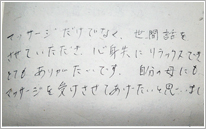 マッサージだけでなく、世間話を
させていただき、心身共にリラックスでき
とてもありがたいです。自分の母にも
マッサージを受けさせてあげたいと思いまし